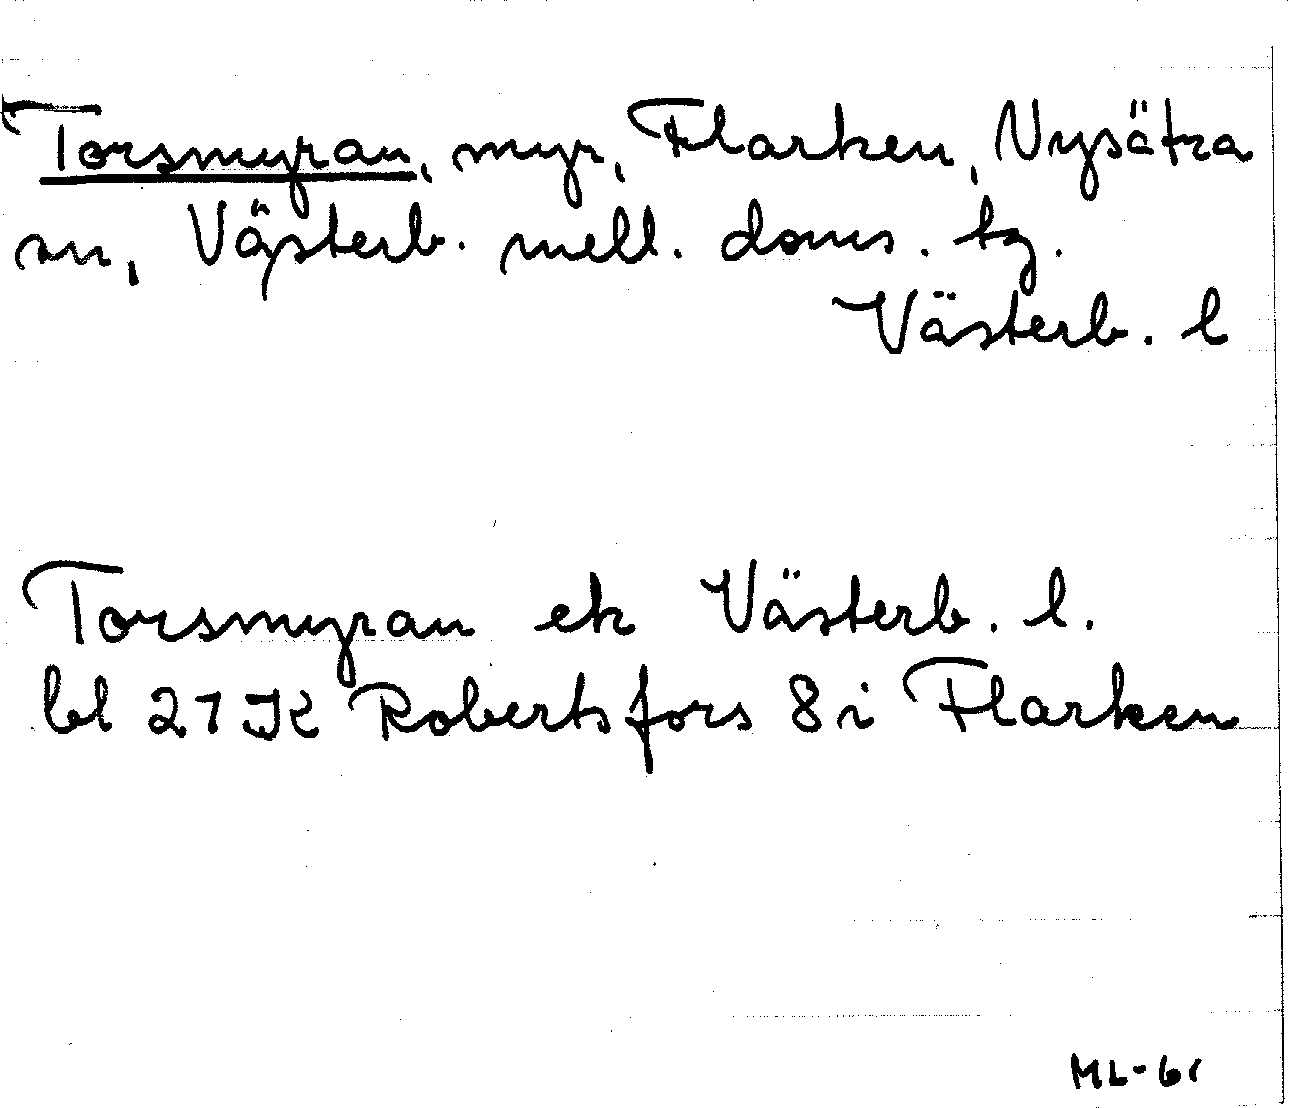 Torsmyran, myr, Flarken, Nysätra
sn, Västerb. mell. doms. tg.
Västerb. l
Torsmyran ek Västerb. l.
bl 21 K Robertsfors 8 i Flarken
ML-61